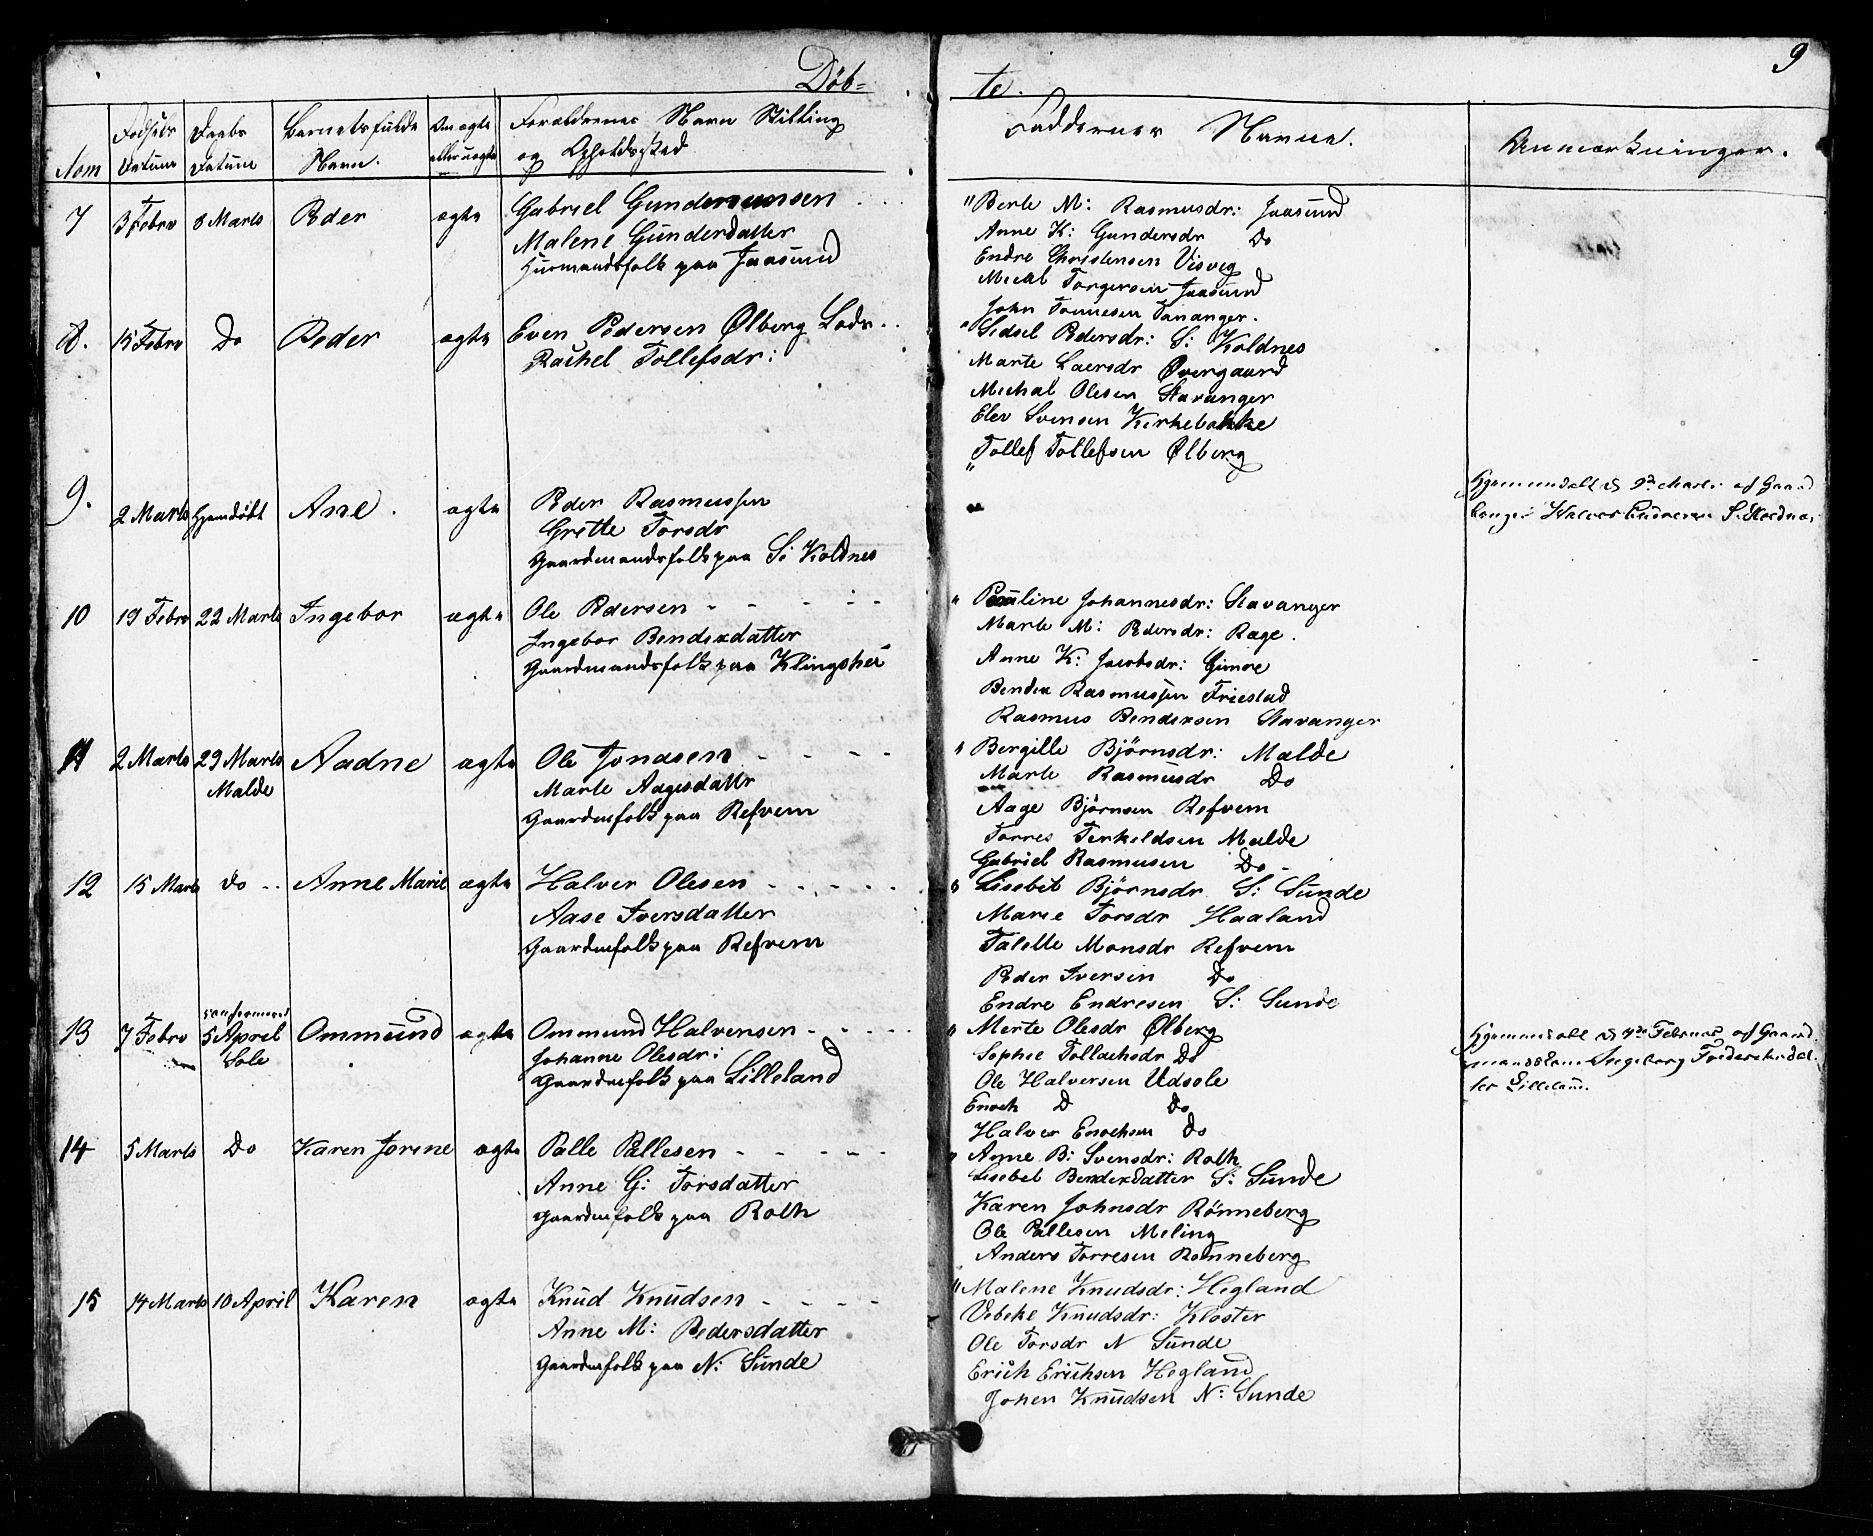 Døb=
te.
9
Nom
Fødsels Datum
Daabs Datum
Barnets fulde Navn.
Om ægte eller uægte
Forældrenes Navn Stilling og Opholdssted
Faddernes Navne.
Anmærkninger.
7 3 Febro 8 Marts Peder ægte Gabriel Gundemunsen
Malene Gunderdatter
Huusmandsfolk paa Jaasund
" Berte M: Rasmusdr: Jaasund
Anne K: Gundersdr Do
Endre Christensen Visveg
Michl Torgersen Jaasund
John Tonnesen Tananger.
8. 15 Febro Do Peder ægte Even Pedersen Ølberg Lods
Rachel Tollefsdr:
" Sidsel Pedersdr: S: Koldnes
Marte Laersdr Øvergaard
Michal Olesen Stavanger
Elev Svensen Kirkebakke
Tollef Tollefsen Ølberg
9. 2 Marts Hjemdøbt Ane. ægte Peder Rasmussen
Gritte Torsdr
Gaardmandsfolk paa S: Koldnes
"
Hjemmedøbt d 2den Marts af Gaard
bruger Halvor S. Koldnes
10 19 Febro 22 Marts Ingebor ægte Ole Pedersen
Ingebor Bendixdatter
Gaardmandsfolk paa Klingshei
" Pauline Johannesdr: Stavanger
Marte M: Pedersdr: Rage.
Anne K: Jacobsdr: Gimre
Bendix Rasmussen Friestad
Rasmus Bendixsen Stavanger
11 2 Marts 29 Marts Malde Aadne ægte Ole Jonasen
Marte Aagesdattr
Gaardmfolk paa Refvem
" Bergille Bjørnsdr: Malde
Marte Rasmusdr Do
Aage Bjørnsen Refvem
Torres Terkeldsen Malde
Gabriel Rasmusen Do
12 15 Marts do Anne Marie ægte Halver Olesen
Aase Iversdatter
Gaardmfolk paa Refvem
" Lisebet Bjørnsdr S: Sunde
Marie Torsdr Haaland
Talette Monsdr Refvem
Peder Iversen Do
Endre Endresen S: Sunde
13 7 Febro confirmeret 5 Aprel Sole Ommund ægte Ommund Halvensen
Johanne Olesdr:
Gaardmfolk paa Lilleland
" Merte Olesdr Ølberg
Sophie Tollachsdr Do
Ole Halversen Udsole
Enoch D Do
Halver Enochsen Do
Hjemmedøbt d 7de Februar af Gaard
mandskone Ingeborg Frideriksdat
ter Lilleland.
14 5 Marts Do Karen Jorine ægte Palle Pallesen
Anne G: Torsdatter
Gaardmfolk paa Roth
" Anne B: Svensdr: Roth
Lisebet Bendixdatter S: Sunde
Karen Johnsdr Rønneberg
Ole Pallesen Meling
Anders Torresen Rønneberg
15 14 Marts 10 April Karen ægte Knud Knudsen
Anne M: Pedersdatter
Gaardmfolk paa N: Sunde
" Malene Knudsdr: Hegland
Vibeke Knudsdr: Kloster
Ole Torsdr N Sunde
Erich Erichsen Hegland
Johen Knudsen N: Sunde